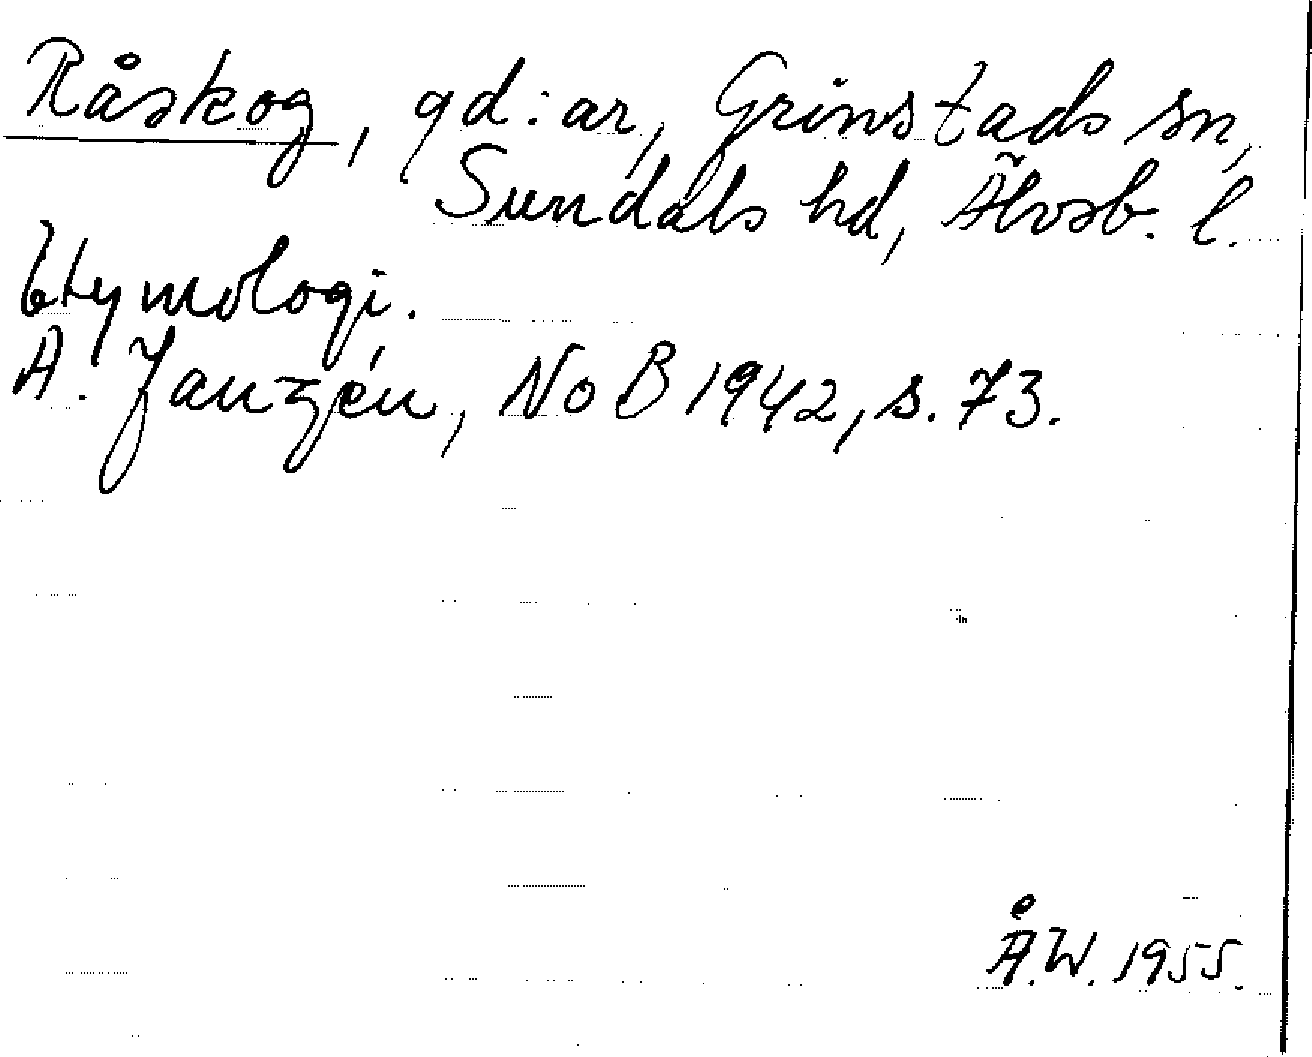 Råskog, gd:ar, Grinstads sn,
Sundals hd, Älvsb. l.
Etymologi.
A. Janzén, NoB 1942, s. 73.
Å.W. 1955.